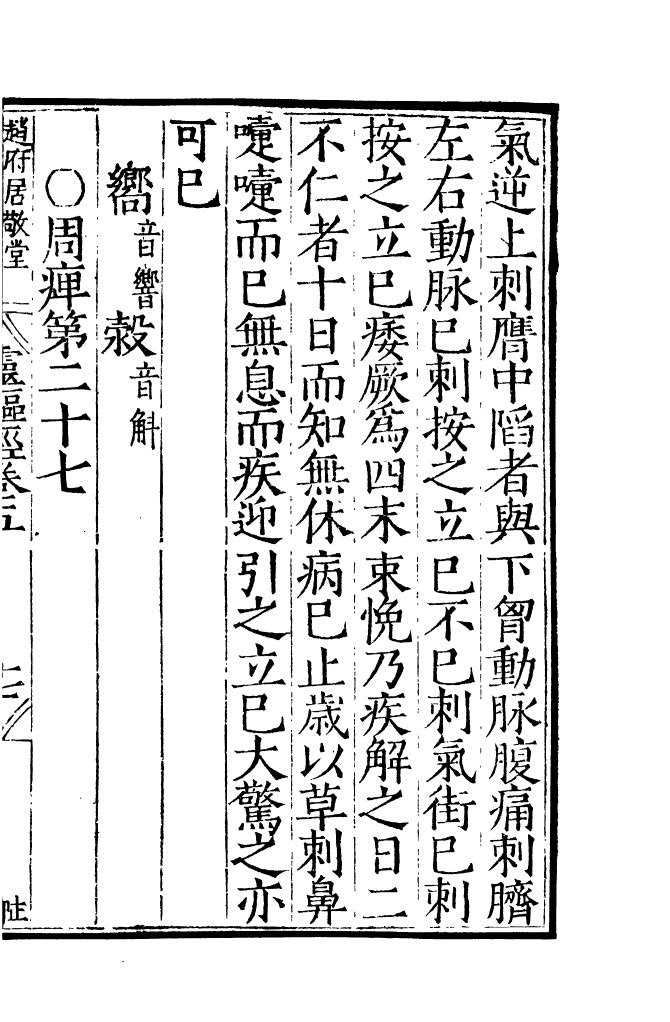 氣逆上刺膺中陷者與下胷動脉腹痛刺臍
左右動脉已刺按之立已不已刺氣街已刺
按之立已痿厥爲四末束悗乃疾解之日二
不仁者十日而知無休病已止歲以草刺鼻
嚏嚏而已無息而疾迎引之立已大驚之亦
可已
嚮音響榖音斛
○周痺第二十七
趙府居敬堂 靈樞經卷五